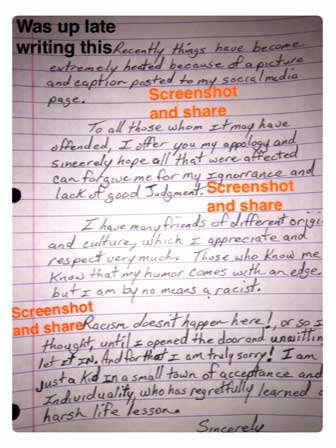 Was up late
writing this Recently things have become
extremely heated because of a picture
and caption posted to my social media
page.
Screenshot
and share
To all those whom it may have
offended, I offer you my appology and
sincerely hope all that were affected
can forgive me for my Ignorrance and
lack of good Judgment.
Screenshot
and share
I have many friends of different origi
and culture, which I appreciate and
respect very much. Those who know me
know that my humor comes with an edge,
but I am by no means a racist.
Screenshot
and share
Racism doesn't happen here!, or so I
thought, until I opened the door and unwittin
let it IN. And for that I am truly sorry! I am
Just a Kid in a small town of acceptance and
Individuality, who has regretfully learned a
harsh life lesson.
Sincerely